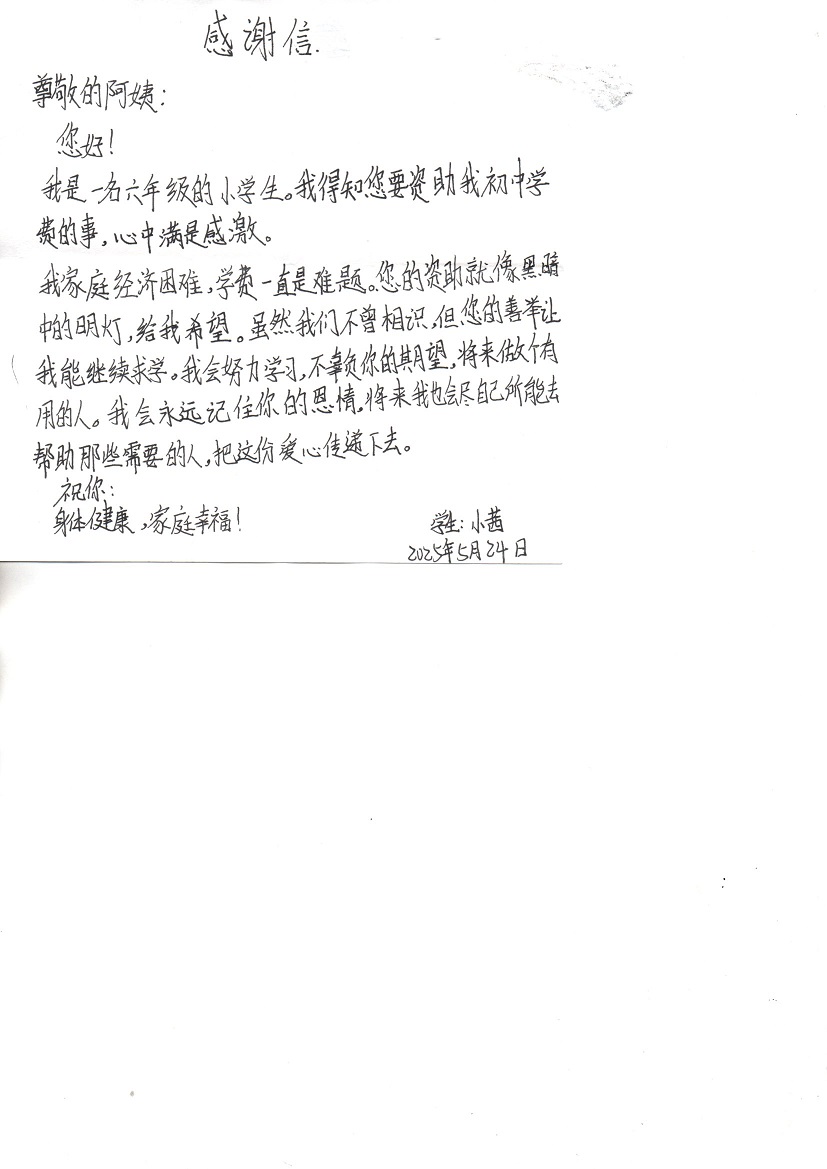 感谢信.
尊敬的阿姨:
您好!
我是一名六年级的小学生。我得知您要资助我初中学
费的事,心中满是感激。
我家庭经济困难,学费一直是难题。您的资助就像黑暗
中的明灯,给我希望。虽然我们不曾相识,但您的善举让
我能继续求学。我会努力学习,不辜负你的期望,将来做个有
用的人。我会永远记住你的恩情,将来我也会尽自己所能去
帮助那些需要的人,把这份爱心传递下去。
祝你:
身体健康,家庭幸福!
学生:小茜
2025年5月24日